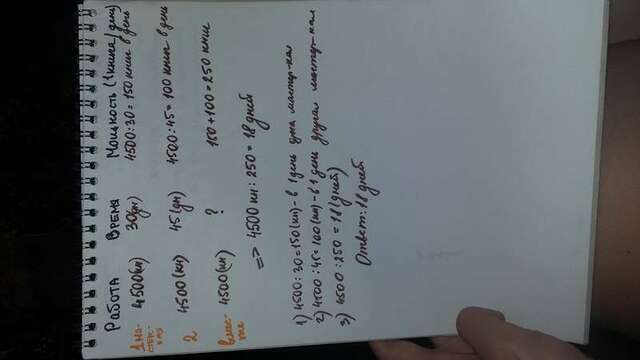 Работа Время Мощность (1 книга/день)
1 ма-
стерс-
кая 4500(кн) 30(дн) 4500:30=150 книг в день
2 4500 (кн) 45(дн) 4500:45=100 книг в день
вмес-
те 4500(кн) ? 150+100=250 книг
=> 4500 кн : 250 = 18 дней
1) 4500:30=150(кн)-в 1 день одна мастер-кая
2) 4500:45=100(кн)-в 1 день другая мастер-кая
3) 4500:250 = 18(дней)
Ответ: 18 дней